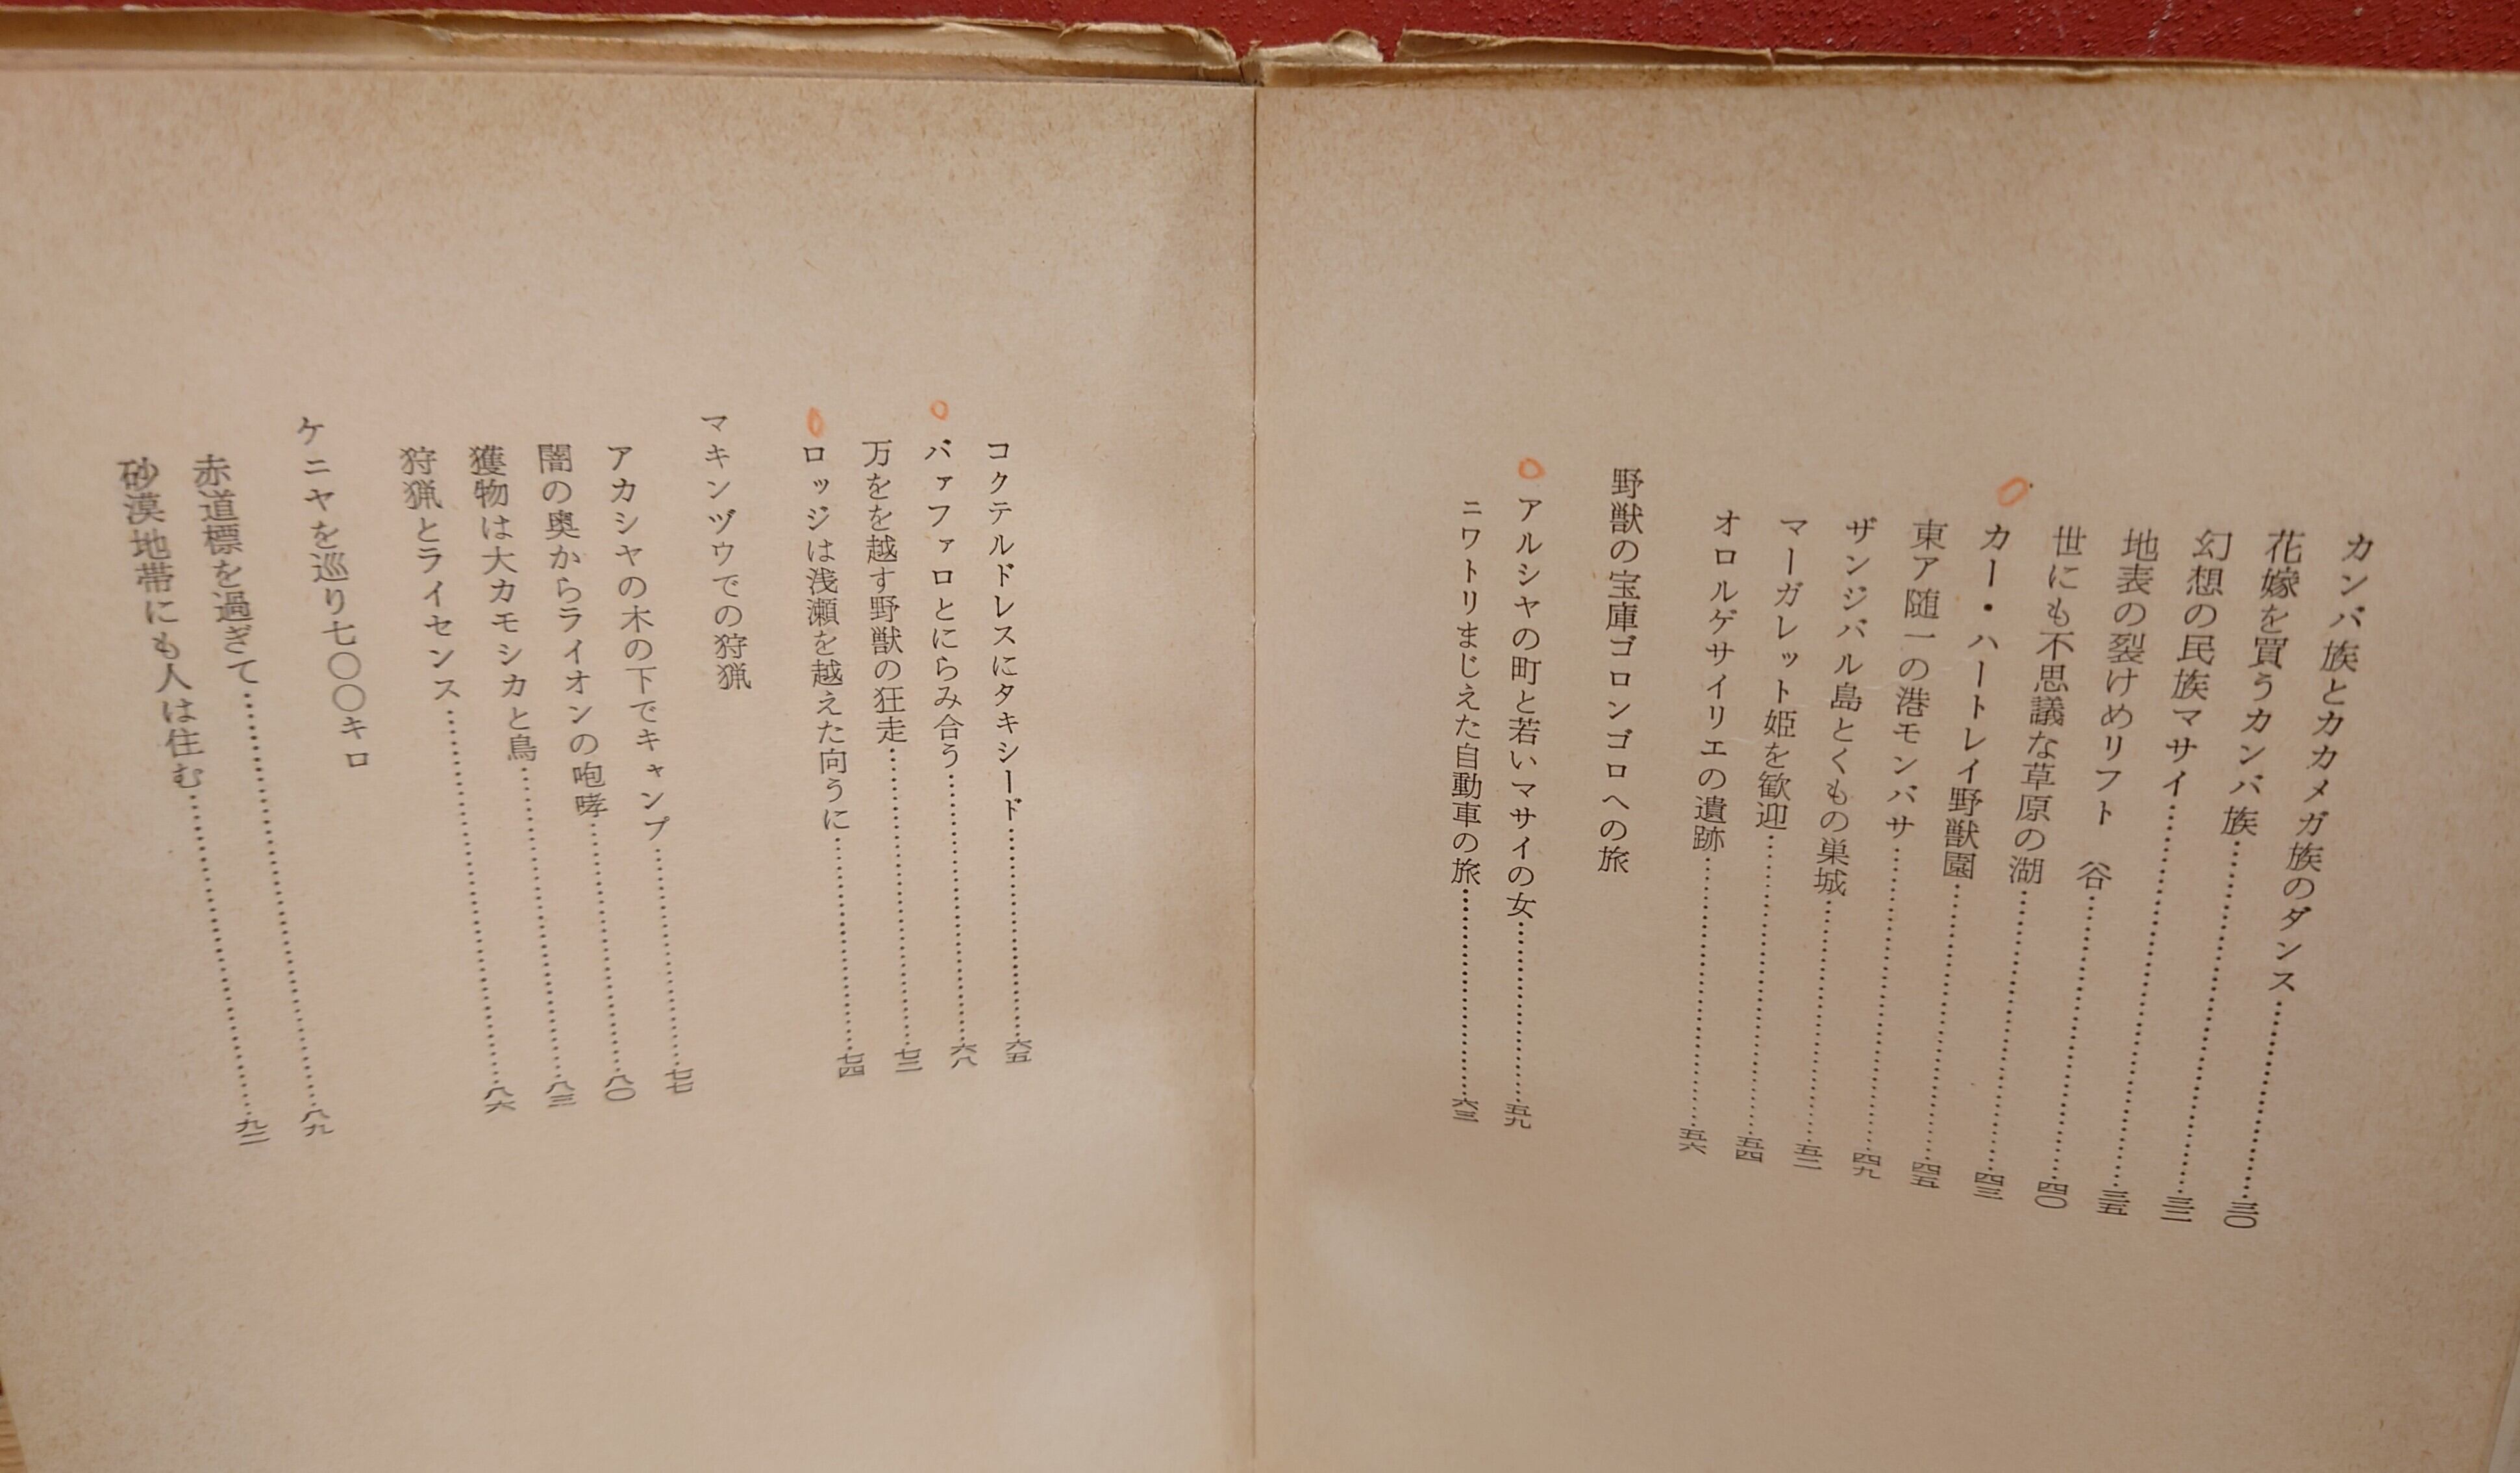 カンバ族とカカメガ族のダンス……三〇
花嫁を買うカンバ族……三三
幻想の民族マサイ……三五
地表の裂けめリフト 谷……四〇
世にも不思議な草原の湖……四三
カー・ハートレイ野獣園……四五
東ア随一の港モンバサ……四九
ザンジバル島とくもの巣城……五二
マーガレット姫を歓迎……五四
オロルゲサイリエの遺跡……五六
野獣の宝庫ゴロンゴロへの旅
アルシャの町と若いマサイの女……五九
ニワトリまじえた自動車の旅……六三
コクテルドレスにタキシード……六五
バァファロとにらみ合う……六八
万をを越す野獣の狂走……七二
ロッジは浅瀬を越えた向うに……七四
マキンヅウでの狩猟
アカシヤの木の下でキャンプ……七七
闇の奥からライオンの咆哮……八〇
獲物は大カモシカと鳥……八三
狩猟とライセンス……八六
ケニヤを巡り七〇〇キロ
赤道標を過ぎて……八九
砂漠地帯にも人は住む……九二